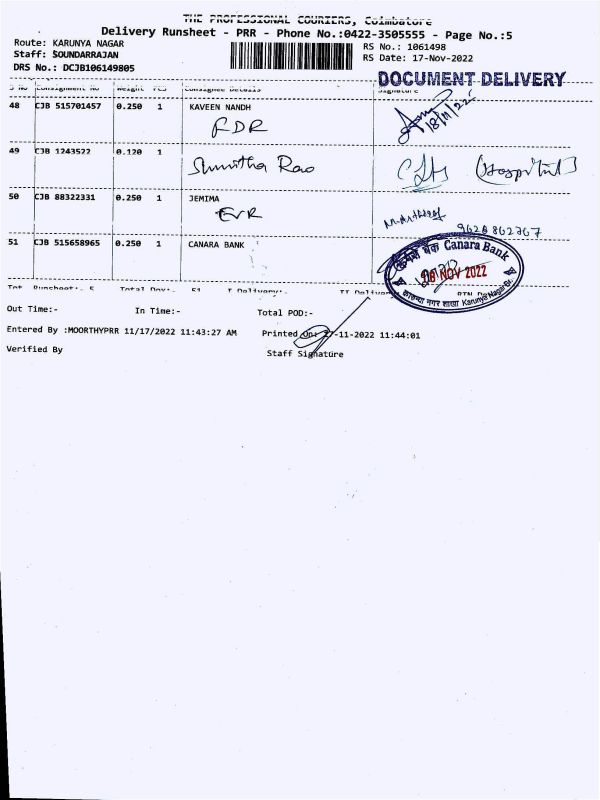 THE PROFESSIONAL COURIERS, Coimbatore
Delivery Runsheet - PRR - Phone No.:0422-3505555 - Page No.:5
Route: KARUNYA NAGAR
RS No.: 1061498
Staff: SOUNDARRAJAN
RS Date: 17-Nov-2022
DRS No.: DCJB106149805
DOCUMENT DELIVERY
S No Consignment No Weight Pcs Consignee Details Signature
48 CJB 515701457 0.250 1 KAVEEN NANDH
RDR
18/11/22
49 CJB 1243522 0.120 1
Shunitha Rao
(Hospital)
50 CJB 88322331 0.250 1 JEMIMA
EVR
9626862767
51 CJB 515658965 0.250 1 CANARA BANK
केनरा बैंक Canara Bank
18 NOV 2022
कारुण्या नगर शाखा Karunya Nagar Br.
Out Time:- In Time:- Total POD:-
Entered By :MOORTHYPRR 11/17/2022 11:43:27 AM Printed On: 17-11-2022 11:44:01
Verified By Staff Signature